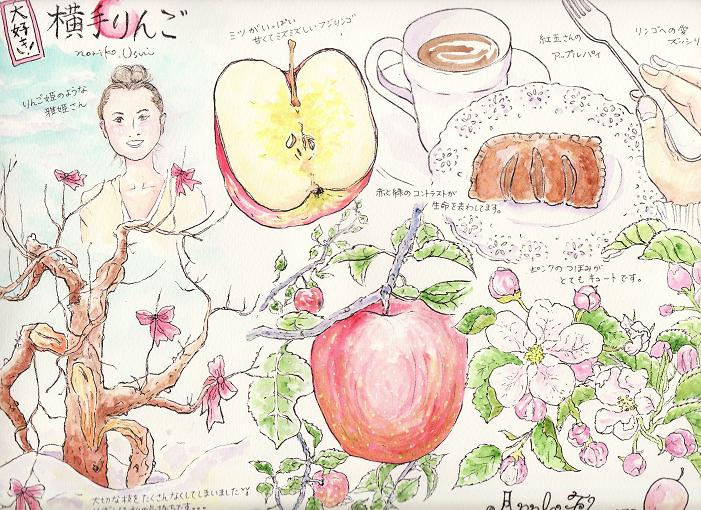 大好き!
横手りんご
noriko.Usui
りんご姫のような
雅姫さん
ミツがいっぱい
甘くてミズミズしいフジリンゴ
紅玉さんの
アップルパイ
リンゴへの愛
ズッシリ
赤と緑のコントラストが
生命を表わしてます。
ピンクのつぼみが
とてもキュートです。
大切な枝をたくさんなくしてしまいました